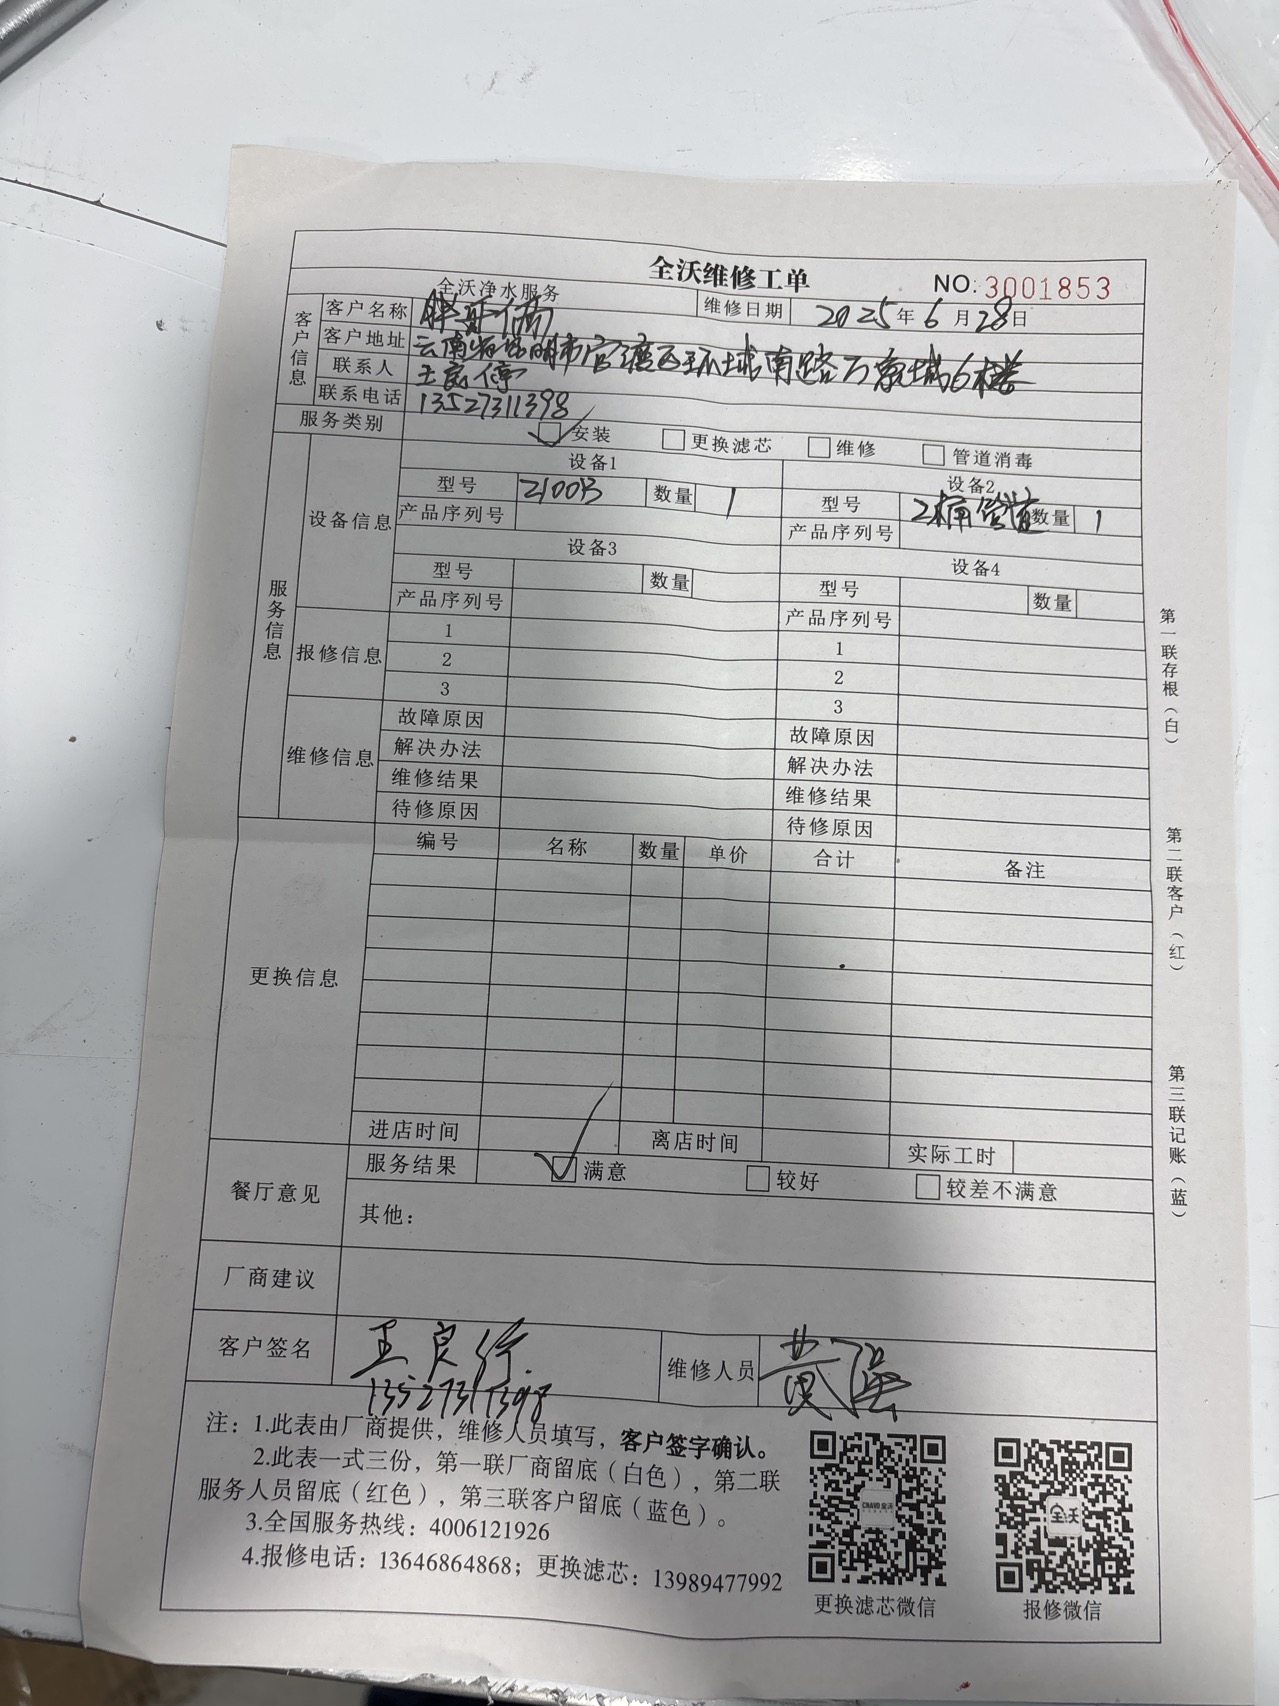 全沃维修工单
NO: 3001853
全沃净水服务
维修日期 2025年6月28日
客户信息
客户名称 胖哥俩
客户地址 云南省昆明市官渡区环球南路万象城6楼
联系人 王良
联系电话 13527311398
服务类别 安装 更换滤芯 维修 管道消毒
服务信息
设备信息
设备1 设备2
型号 2100B 数量 1 型号 2桶管道 数量 1
产品序列号 产品序列号
设备3 设备4
型号 数量 型号 数量
产品序列号 产品序列号
报修信息
1 1
2 2
3 3
维修信息
故障原因 故障原因
解决办法 解决办法
维修结果 维修结果
待修原因 待修原因
更换信息
编号 名称 数量 单价 合计 备注
进店时间 离店时间 实际工时
餐厅意见
服务结果 满意 较好 较差不满意
其他：
厂商建议
客户签名 王良 维修人员 黄强
13527311398
注：1.此表由厂商提供，维修人员填写，客户签字确认。
2.此表一式三份，第一联厂商留底（白色），第二联
服务人员留底（红色），第三联客户留底（蓝色）。
3.全国服务热线：4006121926
4.报修电话：13646864868；更换滤芯：13989477992
全沃
更换滤芯微信 报修微信
第一联存根（白）
第二联客户（红）
第三联记账（蓝）